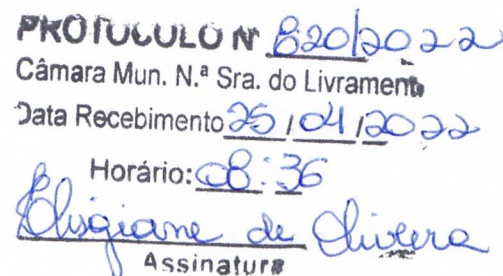 PROTOCOLO Nº 820/2022
Câmara Mun. N.ª Sra. do Livramento
Data Recebimento 25/04/2022
Horário: 08:36
Elisgiane de Oliveira
Assinatura